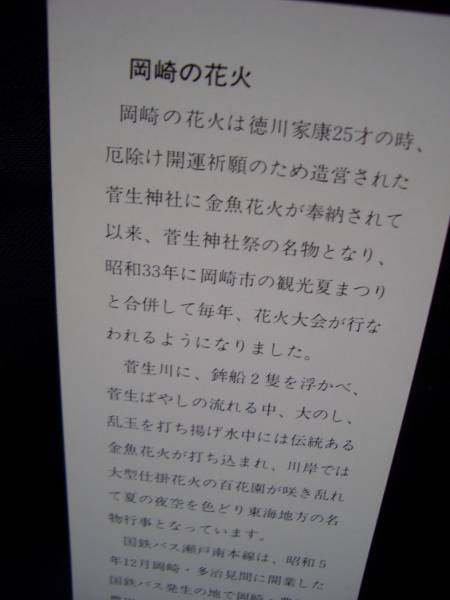 岡崎の花火
岡崎の花火は徳川家康25才の時、
厄除け開運祈願のため造営された
菅生神社に金魚花火が奉納されて
以来、菅生神社祭の名物となり、
昭和33年に岡崎市の観光夏まつり
と合併して毎年、花火大会が行な
われるようになりました。
菅生川に、鉾船2隻を浮かべ、
菅生ばやしの流れる中、大のし、
乱玉を打ち揚げ水中には伝統ある
金魚花火が打ち込まれ、川岸では
大型仕掛花火の百花園が咲き乱れ
て夏の夜空を色どり東海地方の名
物行事となっています。
国鉄バス瀬戸南本線は、昭和5
年12月岡崎・多治見間に開業した
国鉄バス発生の地で岡崎・